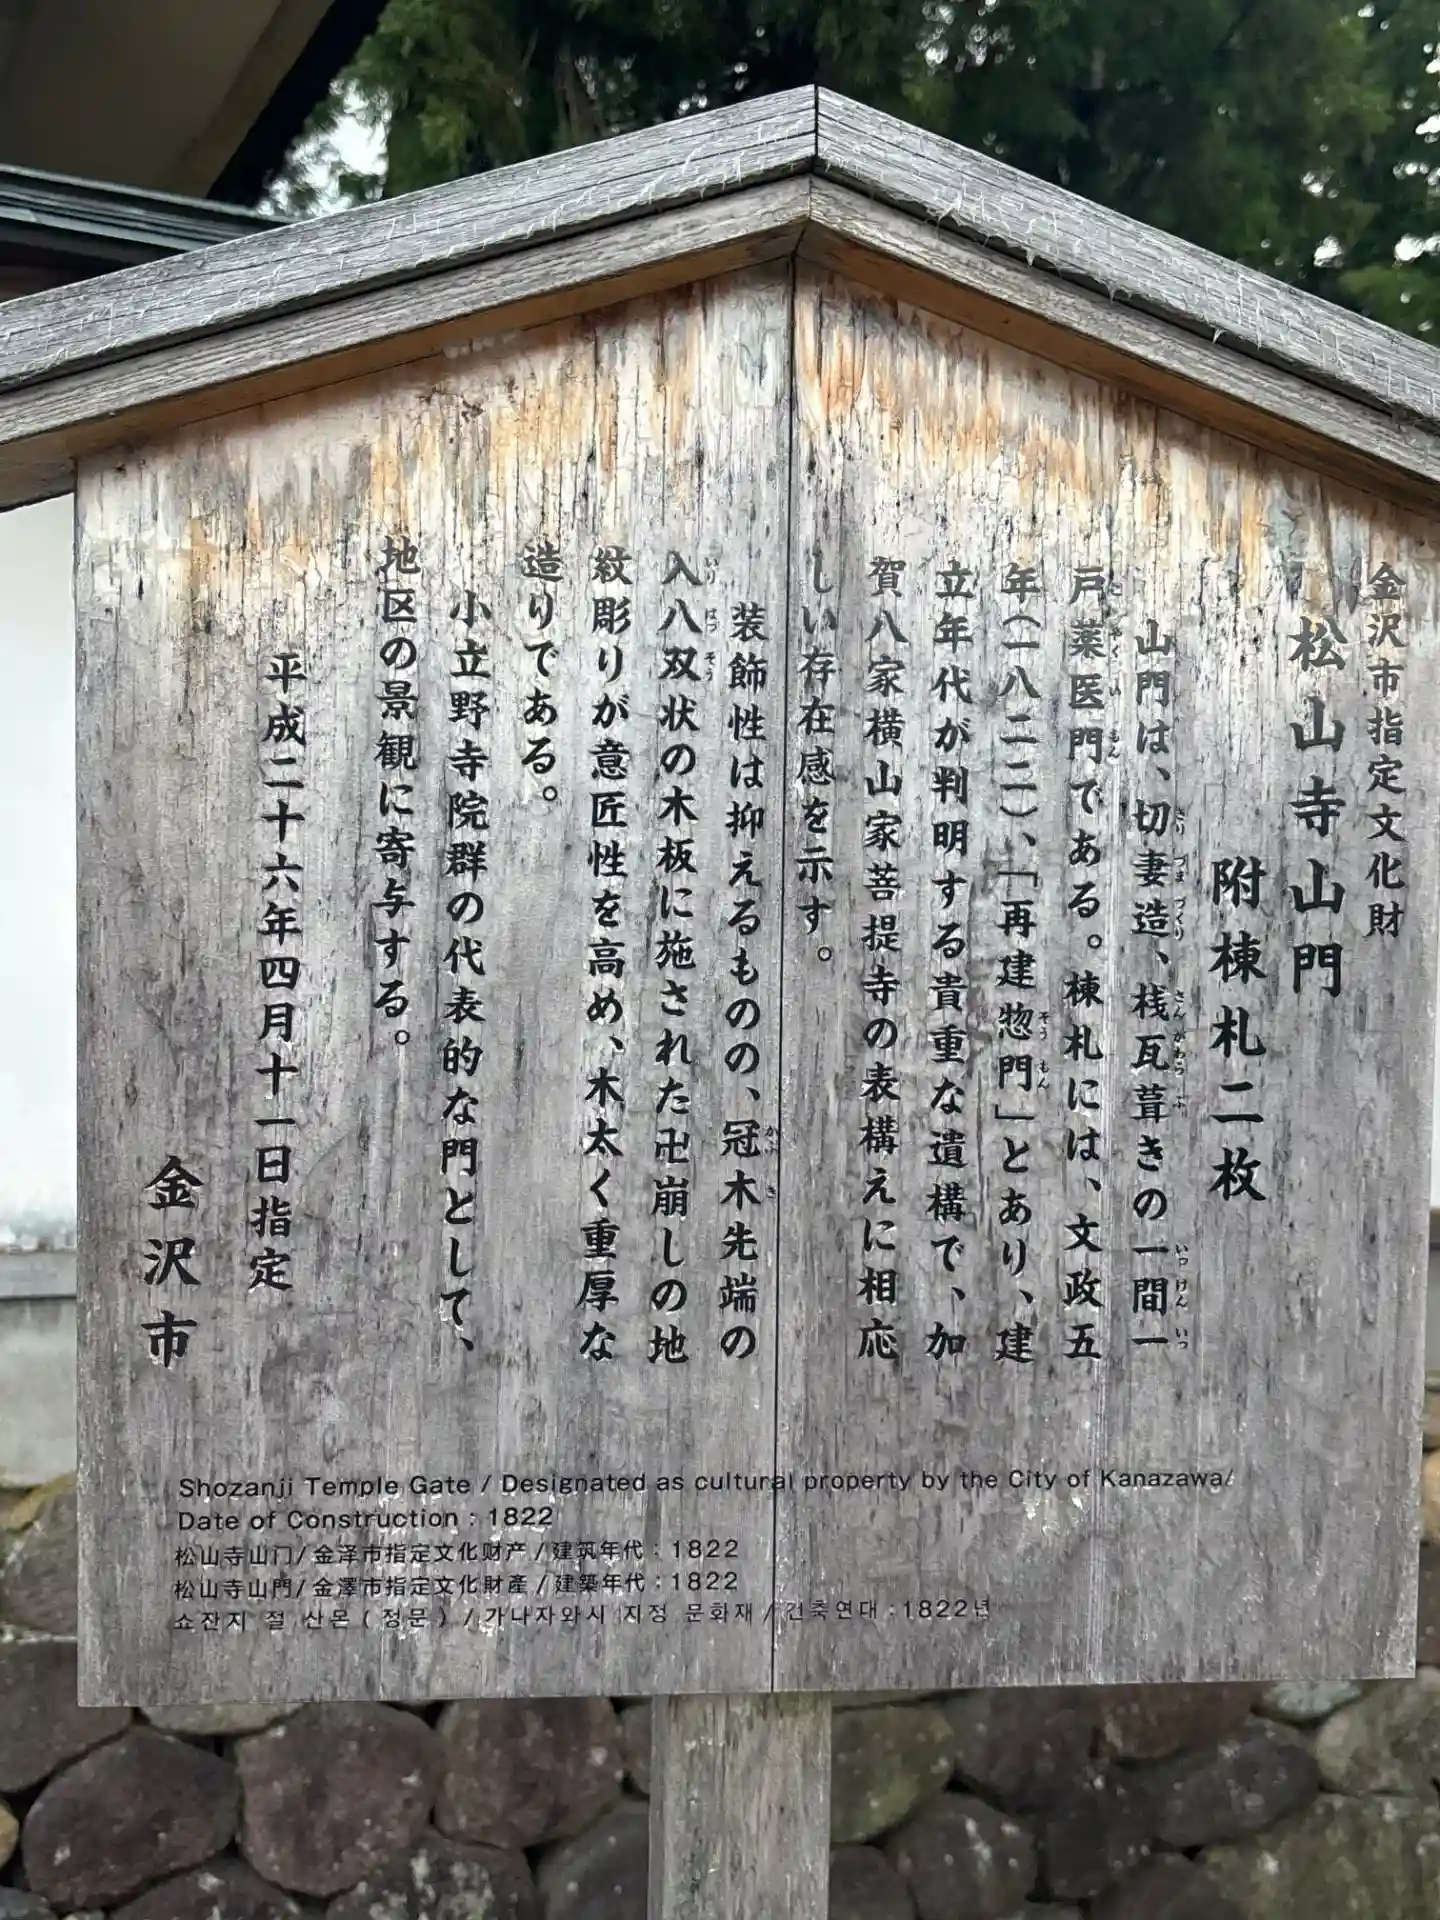 金沢市指定文化財
松山寺山門
附棟札二枚
山門は、切妻造、桟瓦葺きの一間一
戸薬医門である。棟札には、文政五
年（一八二二）、「再建惣門」とあり、建
立年代が判明する貴重な遺構で、加
賀八家横山家菩提寺の表構えに相応
しい存在感を示す。
装飾性は抑えるものの、冠木先端の
入八双状の木板に施された卍崩しの地
紋彫りが意匠性を高め、木太く重厚な
造りである。
小立野寺院群の代表的な門として、
地区の景観に寄与する。
平成二十六年四月十一日指定
金沢市
Shozanji Temple Gate / Designated as cultural property by the City of Kanazawa/
Date of Construction : 1822
松山寺山门/金泽市指定文化财产/建筑年代：1822
松山寺山門/金澤市指定文化財產/建築年代：1822
쇼잔지 절 산몬 ( 정문 ) / 가나자와시 지정 문화재 / 건축연대 : 1822년